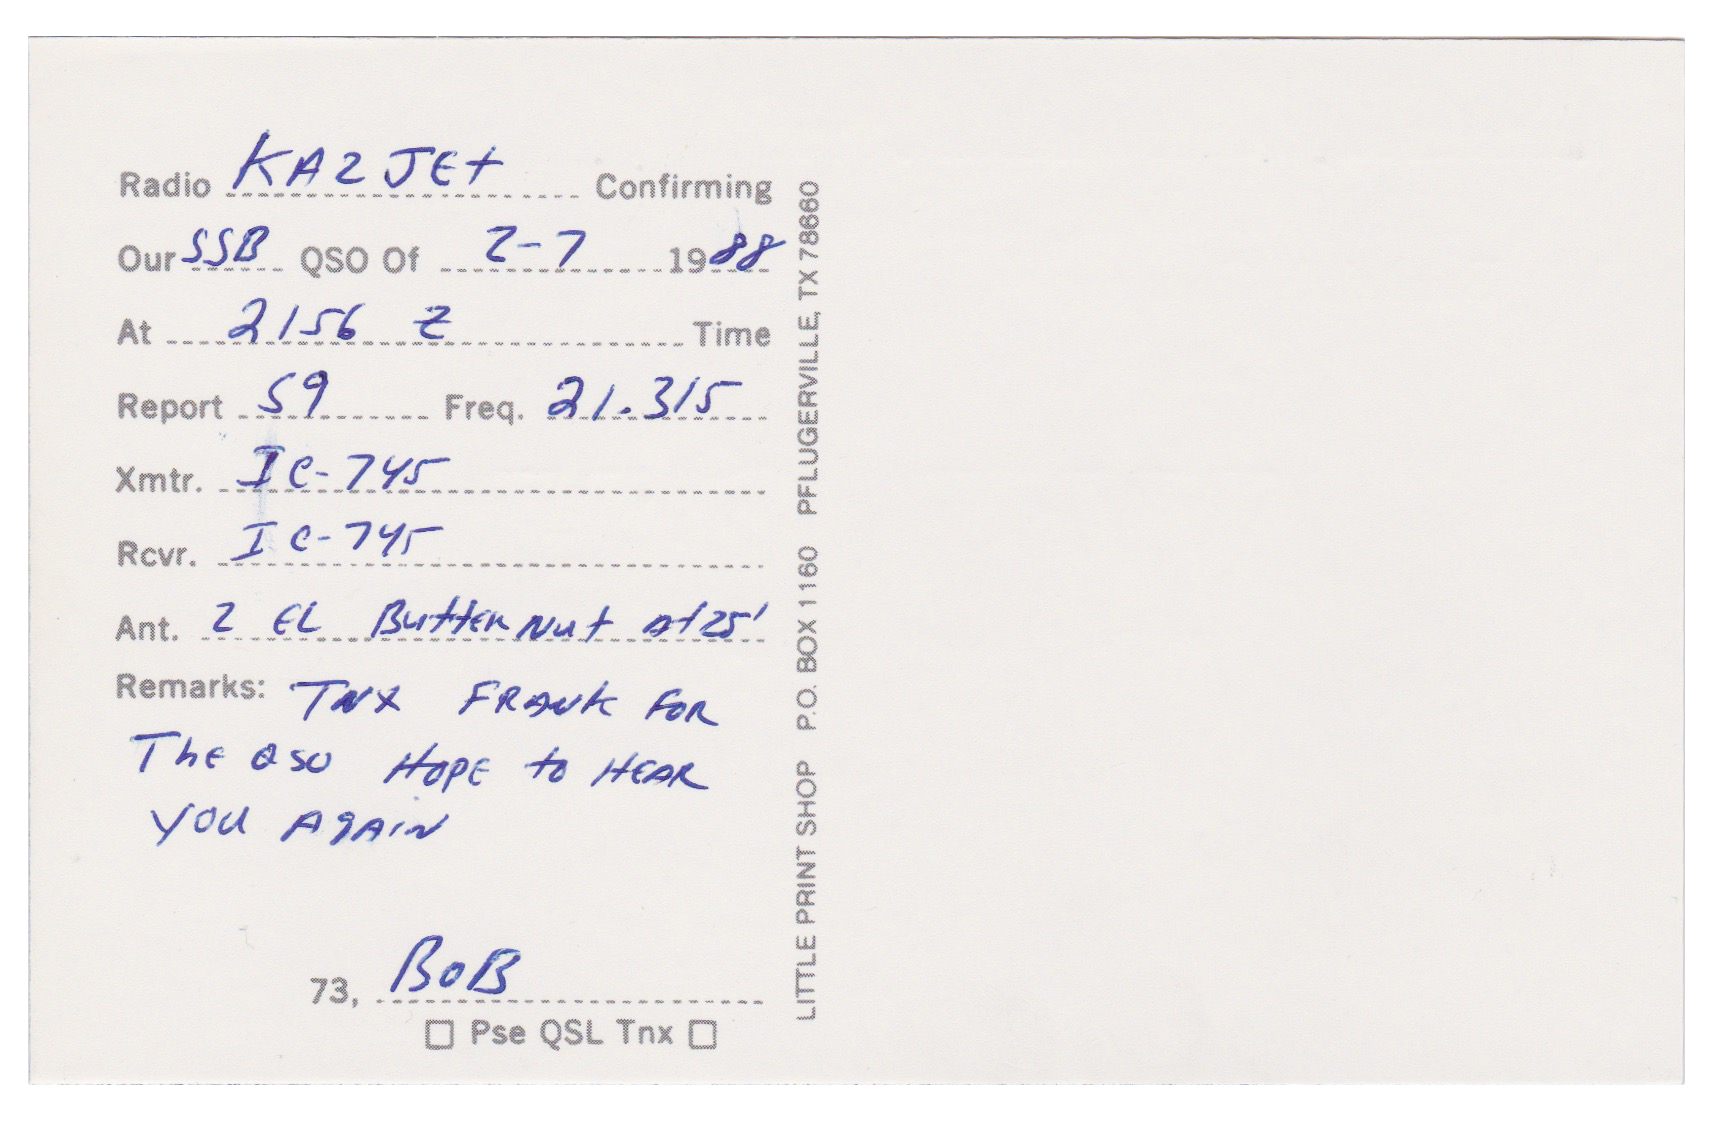 Radio KA2JET Confirming
Our SSB QSO Of 2-7 1988
At 2156 Z Time
Report 59 Freq. 21.315
Xmtr. IC-745
Rcvr. IC-745
Ant. 2 EL Butternut At 25'
Remarks: TNX FRANK FOR
The QSO HOPE to HEAR
you AgAIN
73, BoB
☐ Pse QSL Tnx ☐
LITTLE PRINT SHOP P.O. BOX 1160 PFLUGERVILLE, TX 78660